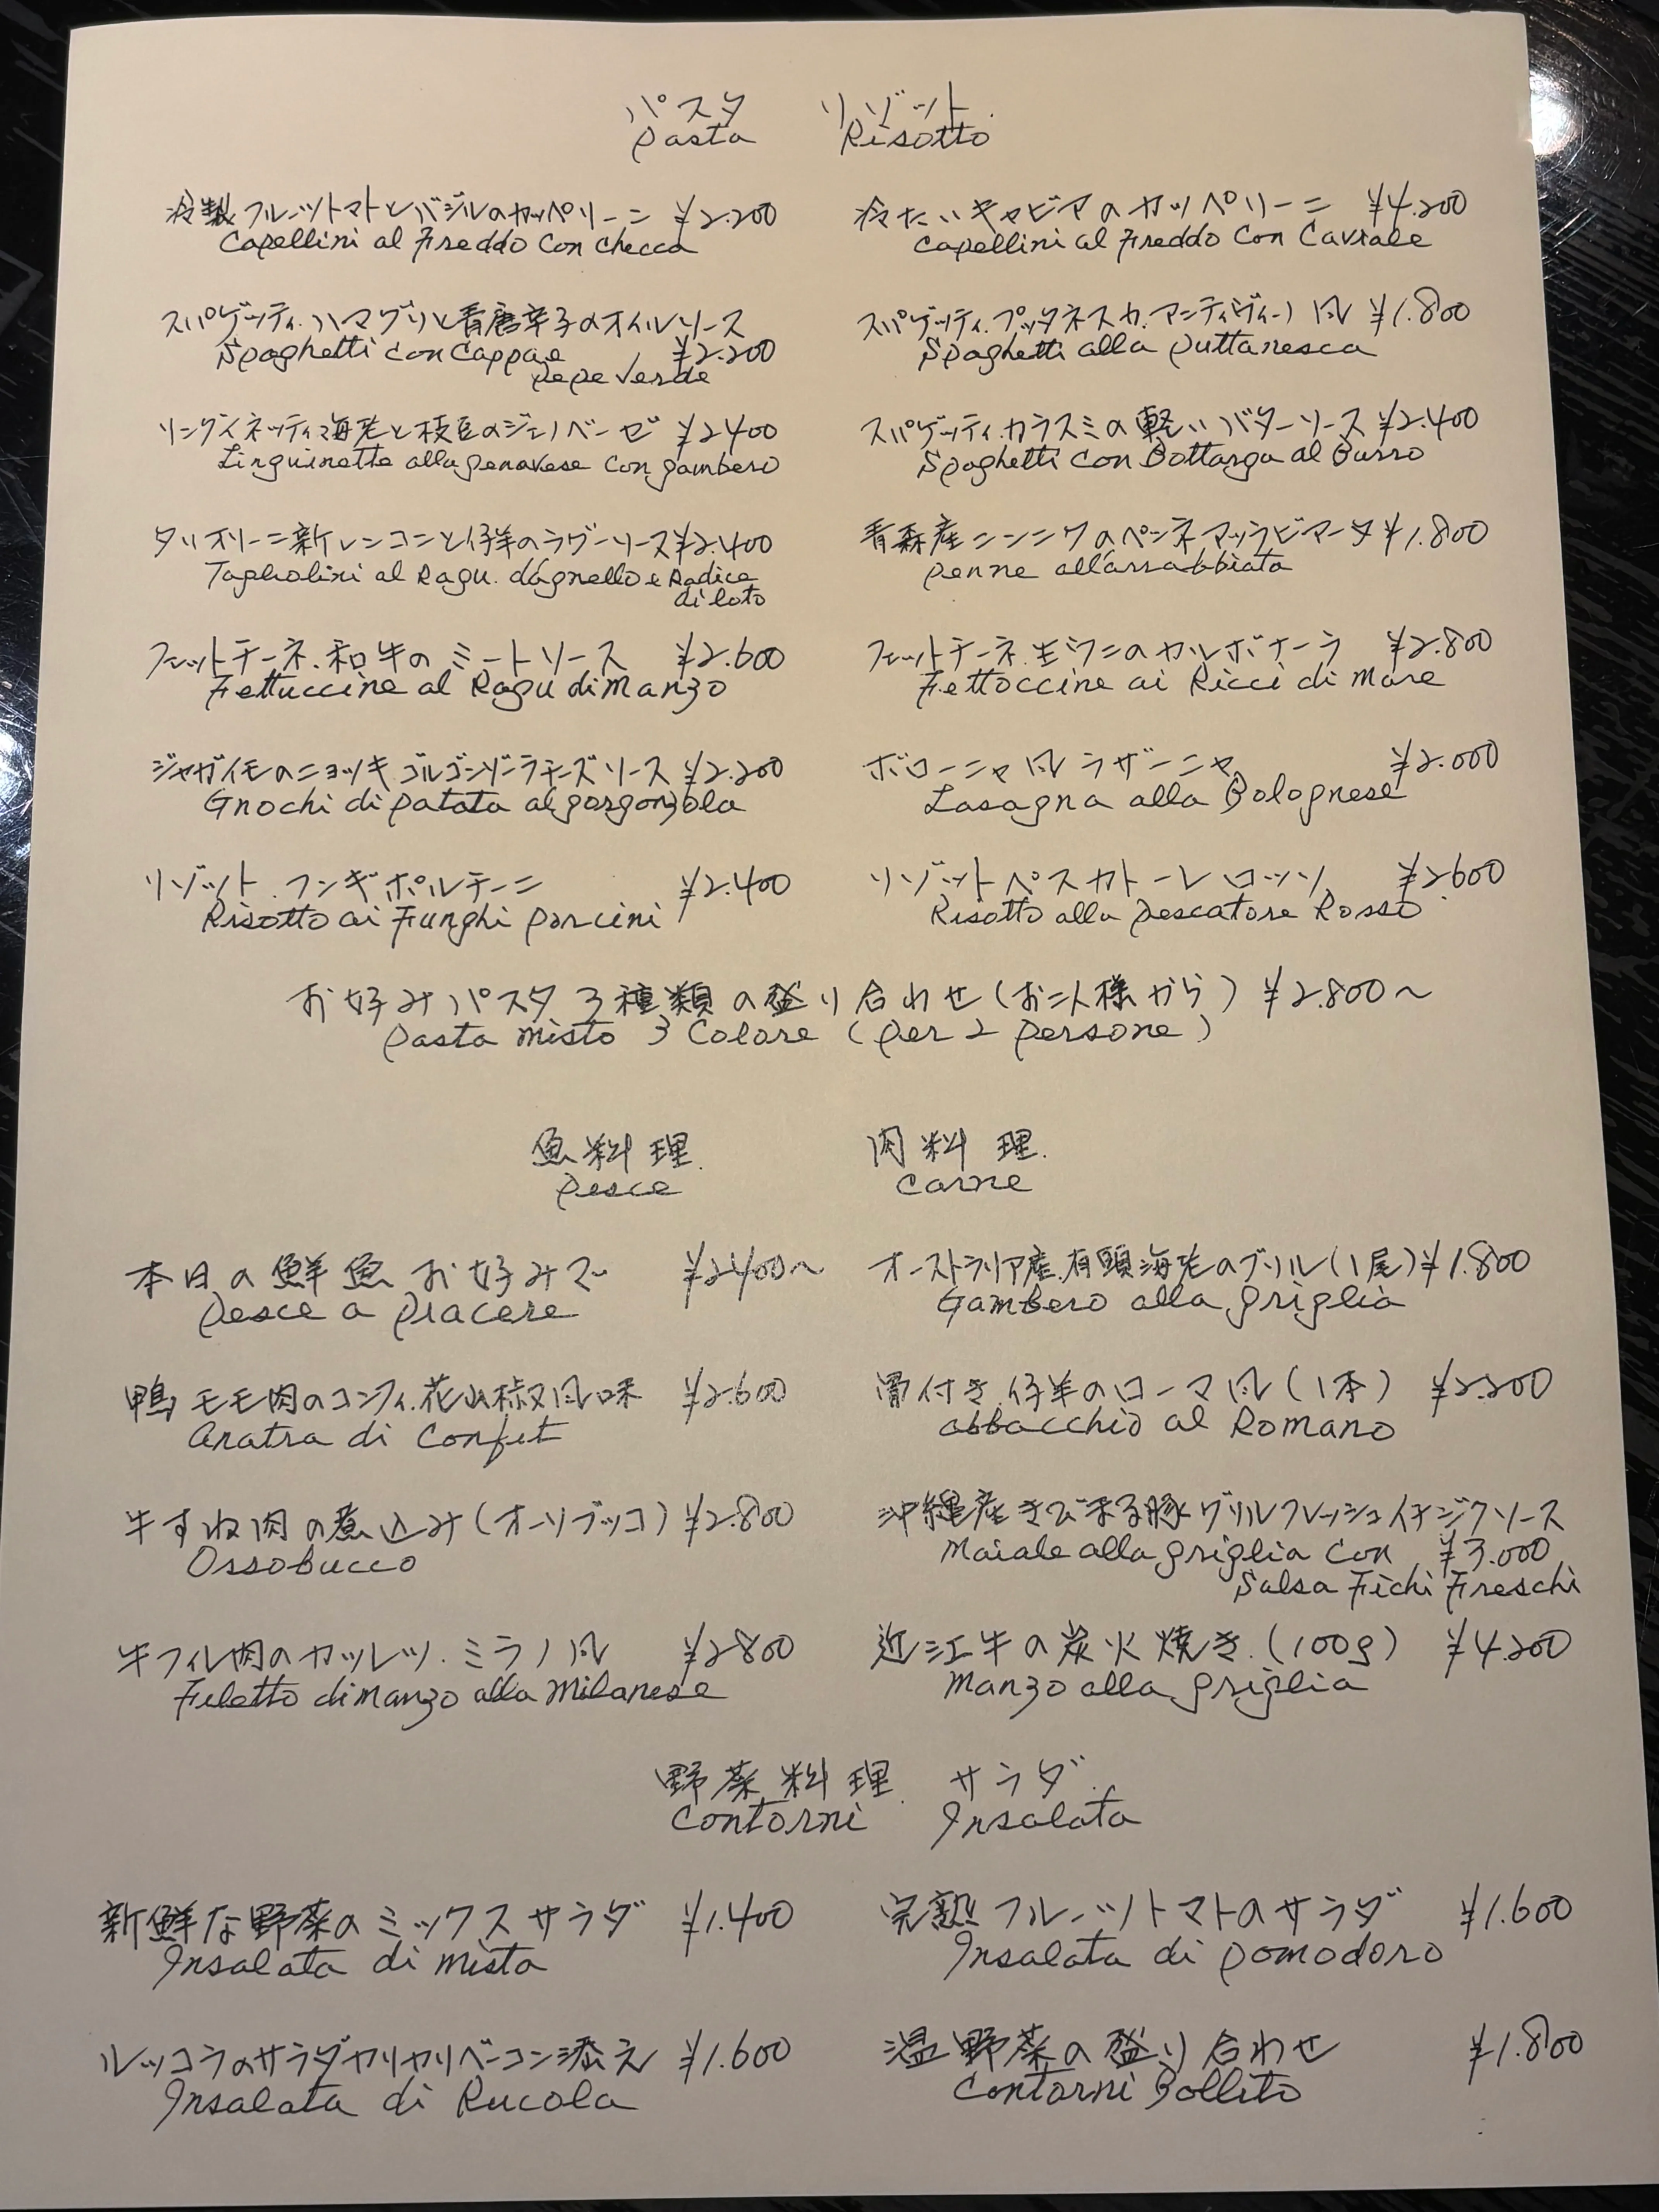 パスタ リゾット
Pasta Risotto
冷製フルーツトマトとバジルのカッペリーニ ¥2.200
Capellini al Freddo Con Checca
冷たいキャビアのカッペリーニ ¥4.200
Capellini al Freddo Con Caviale
スパゲッティ.ハマグリと青唐辛子のオイルソース
Spaghetti Con Cappae ¥2.200
Pepe Verde
スパゲッティ.プッタネスカ.アンティヴィーノ風 ¥1.800
Spaghetti alla Puttanesca
リングイネッティ海老と枝豆のジェノベーゼ ¥2400
Linguinette alla genovese Con gambero
スパゲッティ.カラスミの軽いバターソース ¥2.400
Spaghetti Con Bottarga al Burro
タリオリーニ新レンコンと仔羊のラグーソース ¥2.400
Tagliolini al Ragu. d'agnello e Radice
di loto
青森産ニンニクのペンネアラビアータ ¥1.800
Penne all'arrabbiata
フェットチーネ.和牛のミートソース ¥2.600
Fettuccine al Ragu di Manzo
フェットチーネ.生ウニのカルボナーラ ¥2.800
Fettoccine ai Ricci di Mare
ジャガイモのニョッキ ゴルゴンゾーラチーズソース ¥2.200
Gnochi di Patata al gorgonzola
ボローニャ風ラザーニャ ¥2.000
Lasagna alla Bolognese
リゾット.フンギポルチーニ ¥2.400
Risotto ai Funghi Porcini
リゾットペスカトーレロッソ ¥2600
Risotto alla Pescatore Rosso
お好みパスタ3種類の盛り合わせ(お二人様から) ¥2.800〜
Pasta Misto 3 Colore (Per 2 Persone)
魚料理. 肉料理.
Pesce Carne
本日の鮮魚お好みで ¥2400〜
Pesce a Piacere
オーストラリア産.有頭海老のグリル(1尾) ¥1.800
Gambero alla griglia
鴨モモ肉のコンフィ.花山椒風味 ¥2.600
Anatra di Confit
骨付き.仔羊のローマ風(1本) ¥2.200
abbacchio al Romano
牛すね肉の煮込み(オーソブッコ) ¥2.800
Ossobucco
沖縄産きびまる豚グリルフレッシュイチジクソース
Maiale alla griglia Con ¥3.000
Salsa Fichi Freschi
牛フィレ肉のカツレツ.ミラノ風 ¥2800
Filetto di Manzo alla Milanese
近江牛の炭火焼き.(100g) ¥4.200
Manzo alla griglia
野菜料理. サラダ.
Contorni Insalata
新鮮な野菜のミックスサラダ ¥1.400
Insalata di Mista
完熟フルーツトマトのサラダ ¥1.600
Insalata di Pomodoro
ルッコラのサラダカリカリベーコン添え ¥1.600
Insalata di Rucola
温野菜の盛り合わせ ¥1.800
Contorni Bollito